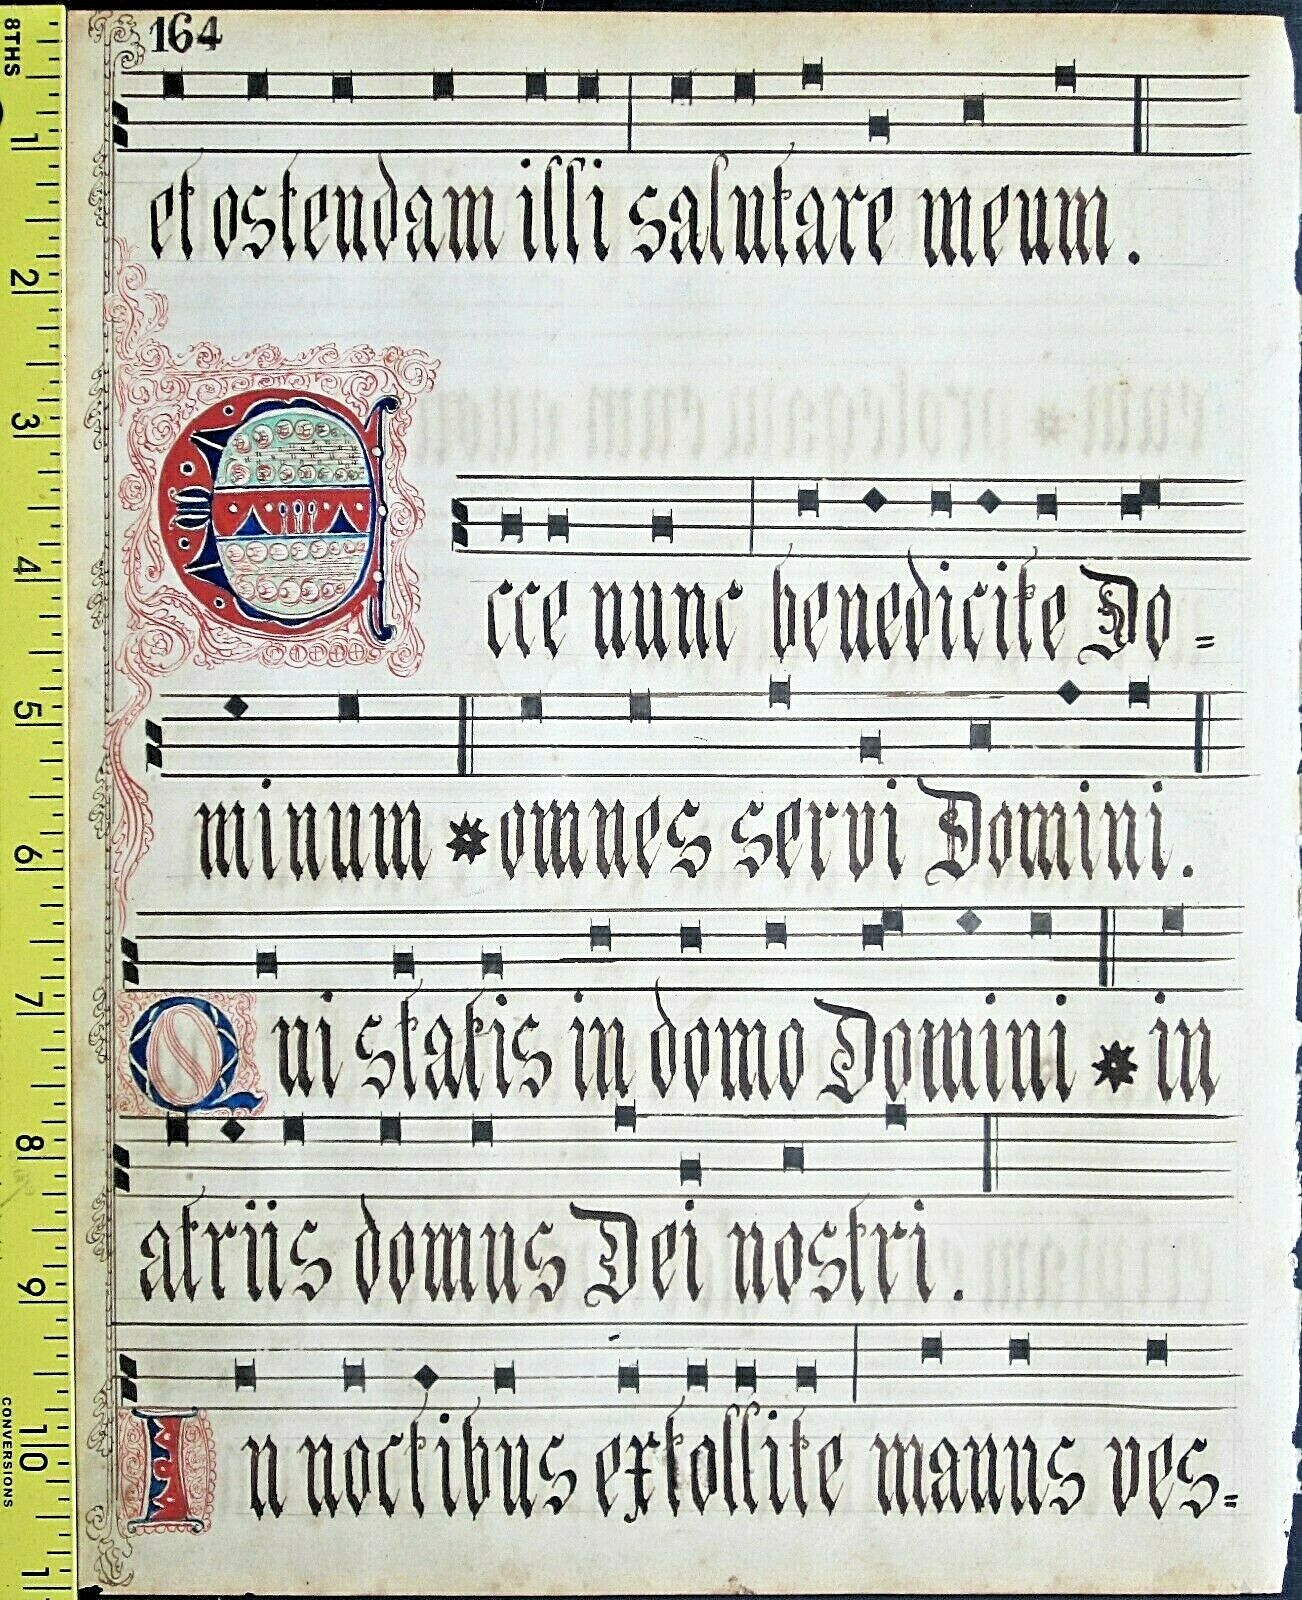 164
et ostendam illi salutare meum.
Ecce nunc benedicite Do=
minum * omnes servi Domini.
Qui statis in domo Domini * in
atriis domus Dei nostri.
In noctibus extollite manus ves=
8THS
1
2
3
4
5
6
7
8
9
10
1
CONVERSIONS